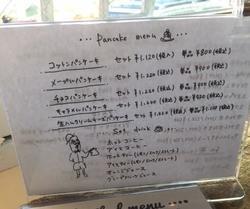 ... Pancake menu ...
コットンパンケーキ セット¥1,120(税込) 単品¥800(税込)
メープルパンケーキ セット¥1,220(税込) 単品¥900(税込)
チョコパンケーキ セット¥1,220(税込) 単品¥900(税込)
キャラメルパンケーキ セット¥1,220(税込) 単品¥900(税込)
セット 単品
... Set drink ...
ホットコーヒー
アイスコーヒー
ホットティー(レモン/ミルク/ストレート)
アイスティー(レモン/ミルク/ストレート)
オレンジジュース
グレープフルーツジュース
menu